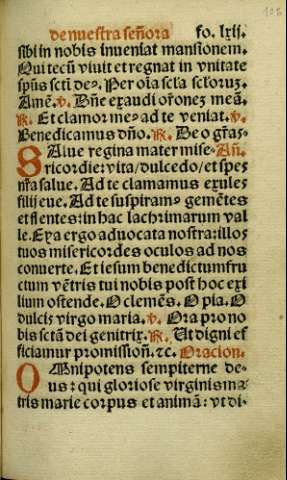 de nuestra señora fo. lxij. 102
sibi in nobis inueniat mansionem.
Qui tecū viuit et regnat in vnitate
spūs scti de⁹. Per oīa scła scłoruʒ.
Amē. v. Dñe exaudi orõneʒ meā.
R. Et clamor me⁹ ad te veniat. v.
Benedicamus dño. R. Deo grãs.
Salue regina mater mise- Añ.
ricordie: vita/dulcedo/et spes
nr̃a salue. Ad te clamamus exules
filij eue. Ad te suspiram⁹ gemẽtes
et flentes: in hac lachrimarum val
le. Eya ergo aduocata nostra: illos
tuos misericordes oculos ad nos
conuerte. Et iesum benedictumfru
ctum vẽtris tui nobis post hoc exi
lium ostende. O clemẽs. O pia. O
dulcis virgo maria. v. Ora pro no
bis sctã dei genitrix. R. Ut digni ef
ficiamur promissioñ. ꝛc. Oracion.
Omnipotens sempiterne de-
us: qui gloriose virginis ma
tris marie corpus et animã: vt di-